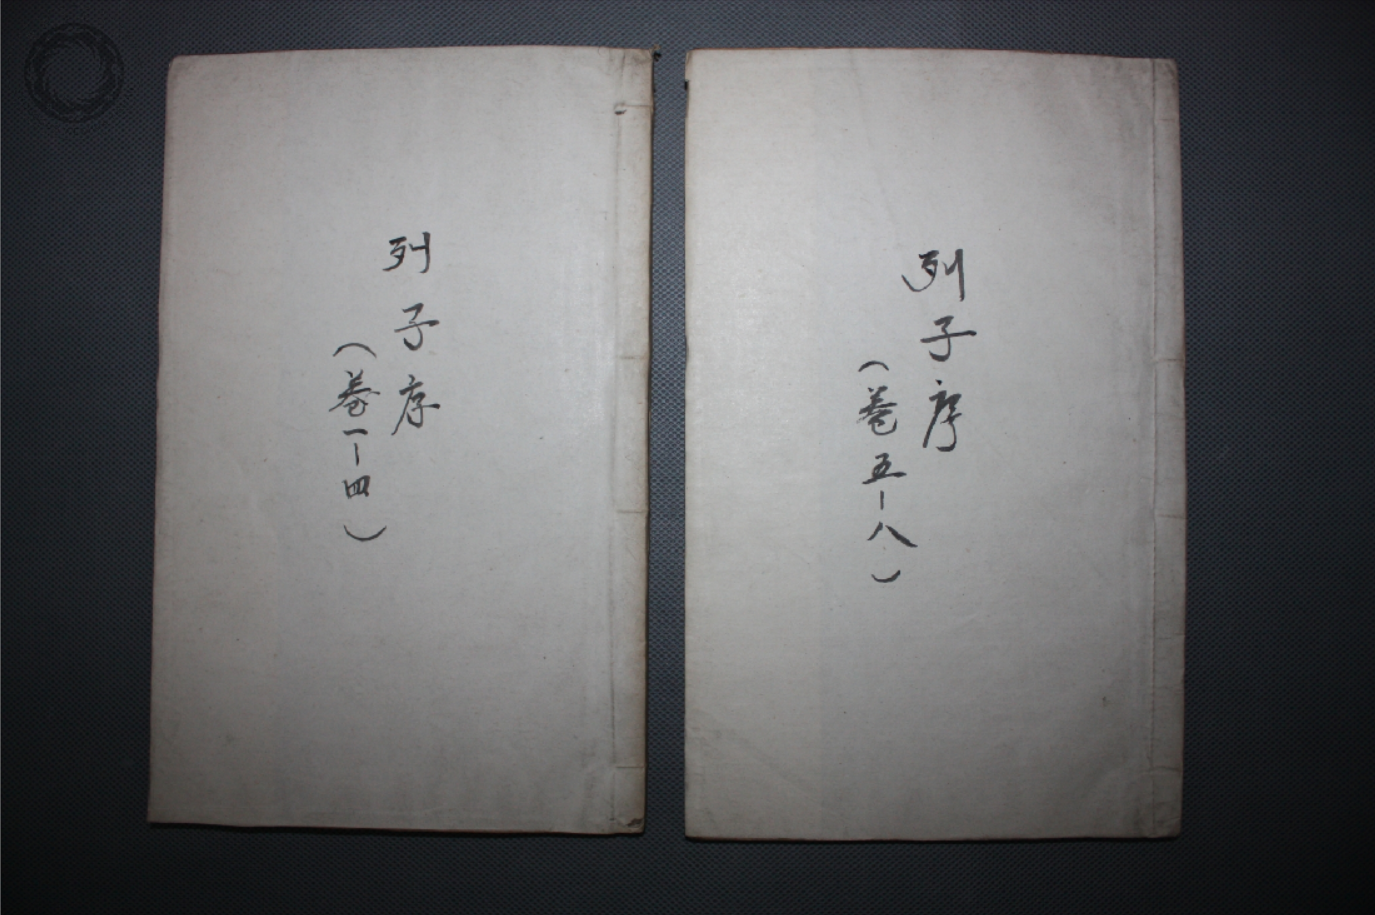 列子序
（卷一-四）
列子序
（卷五-八）